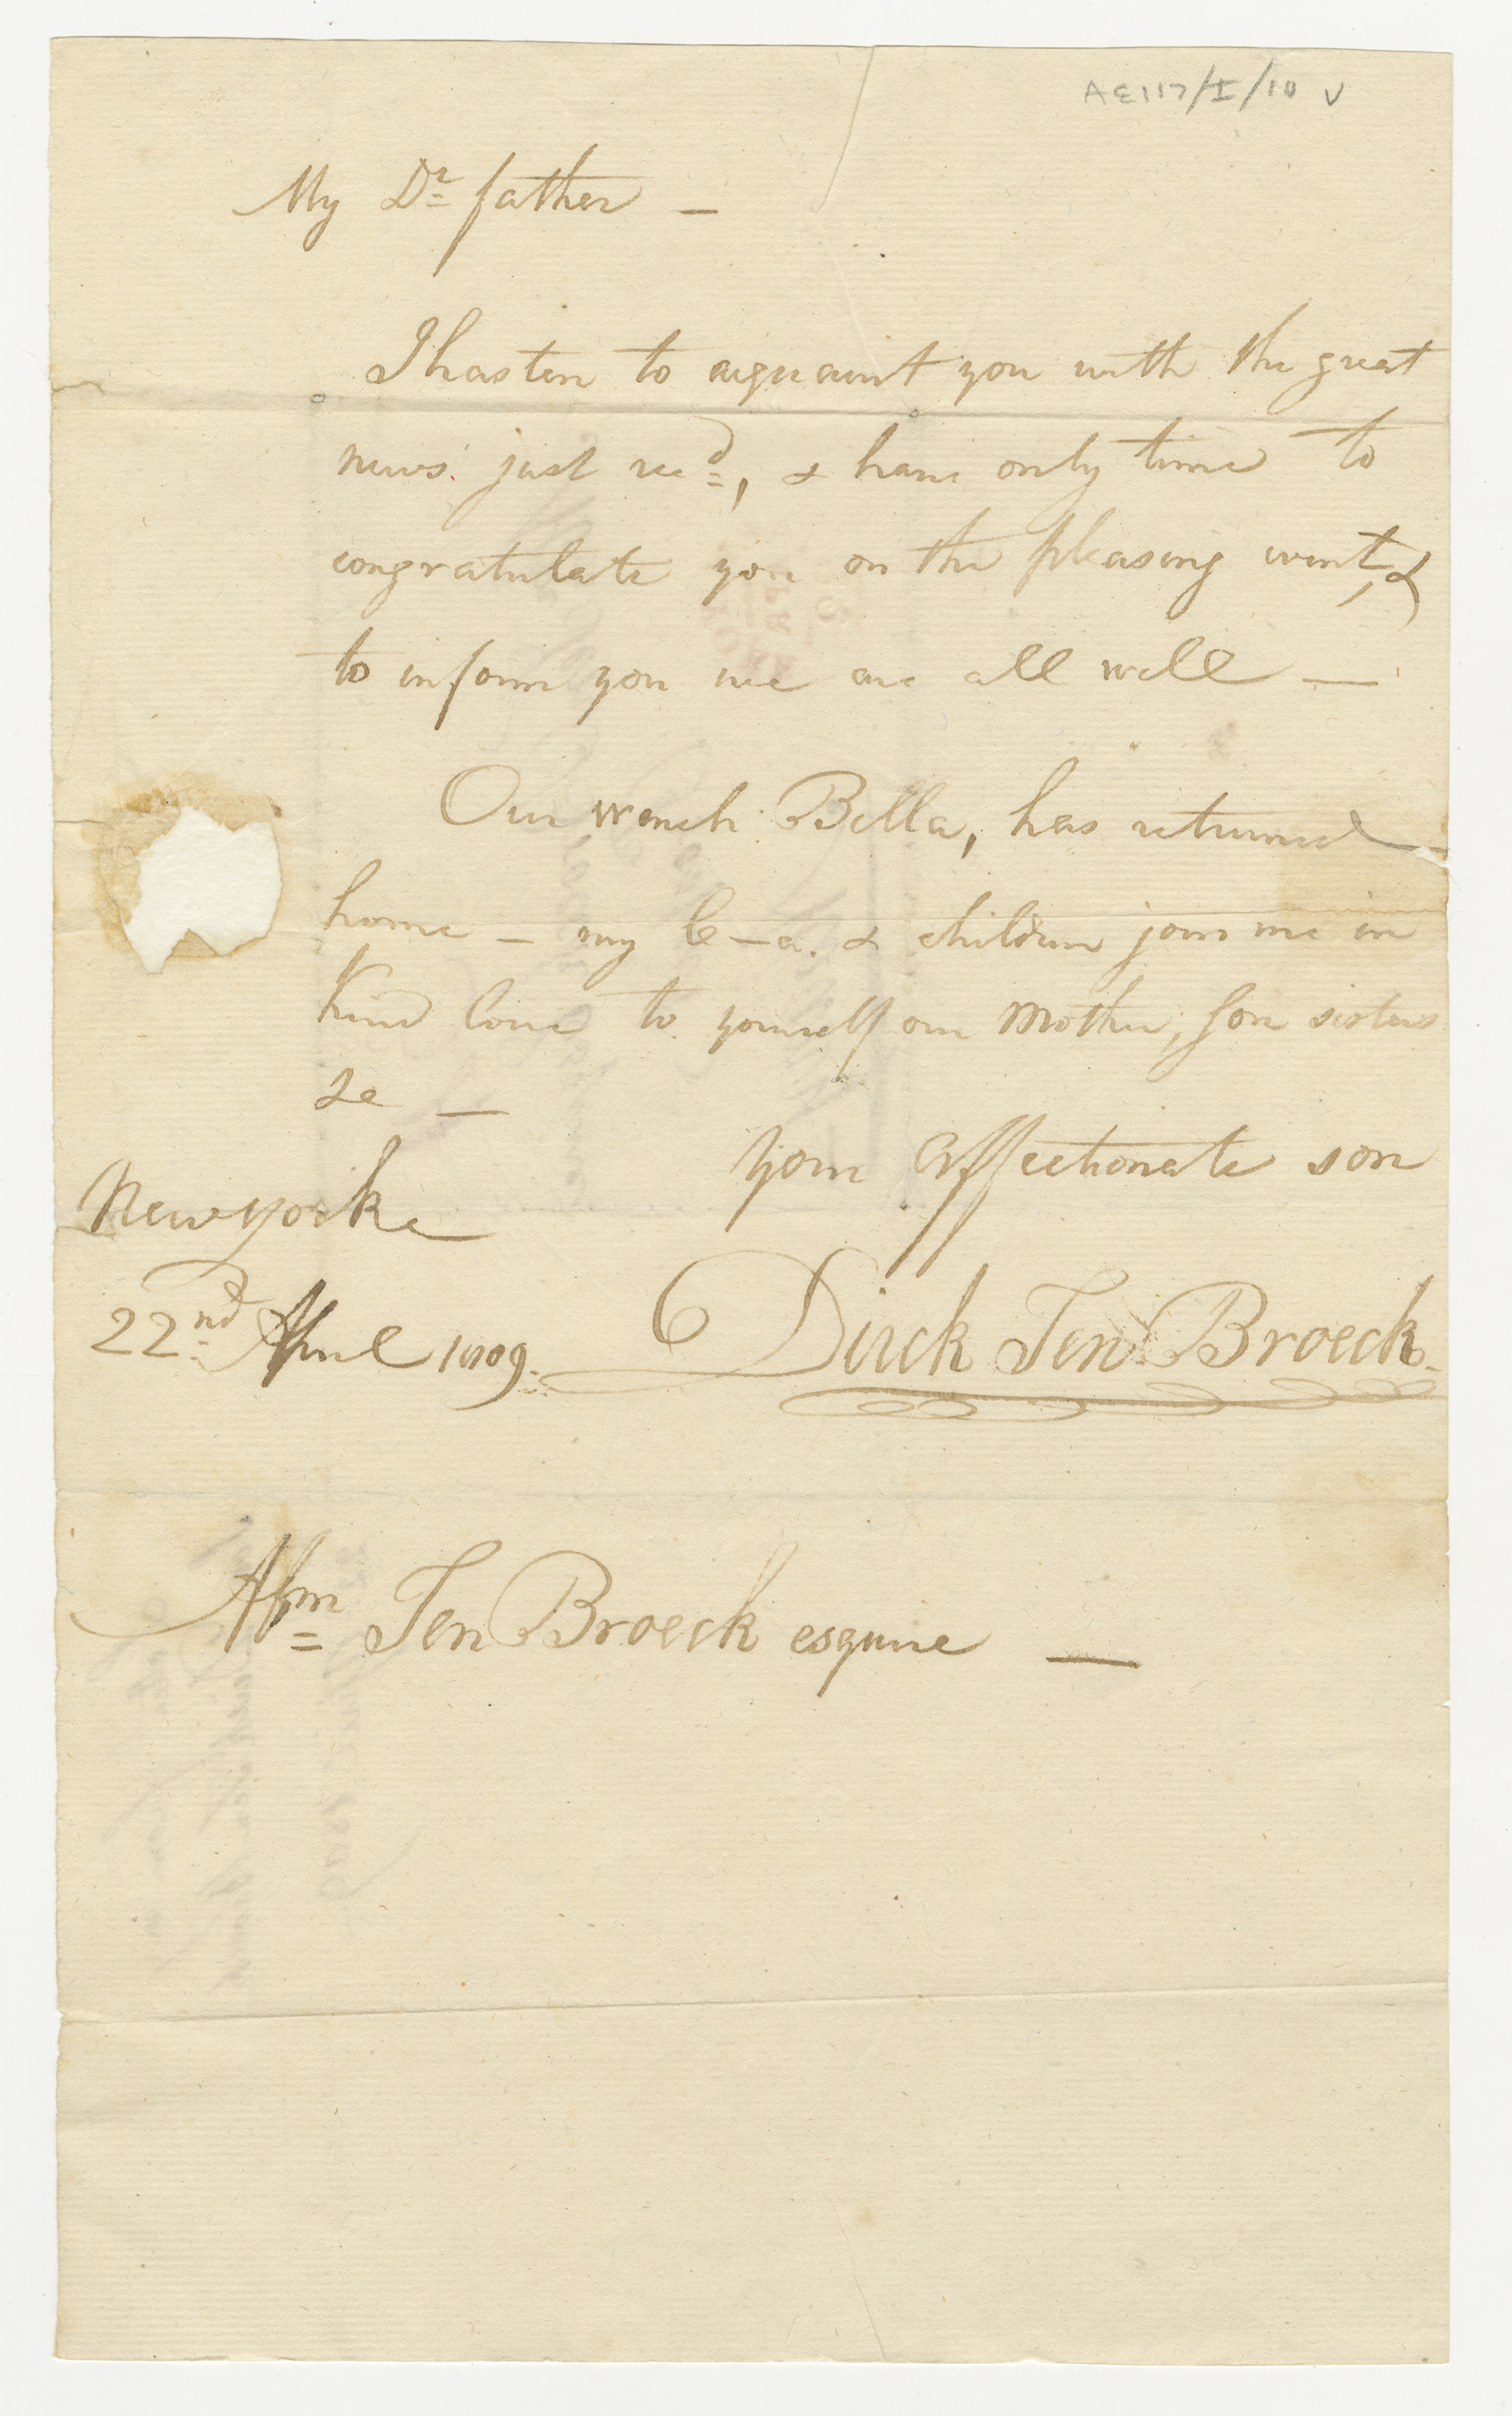 AE117/I/10 V
My Dr father —
I hasten to acquaint you with the great
news just recd, & have only time to
congratulate you on the pleasing event, &
to inform you we are all well —
Our wench Bella, has returned
home — my C—a. & children join me in
kind love to yourself our Mother, Son sisters
&c —
your affectionate son
New yorke
22nd April 1809. Dirck Ten Broeck.
Abm Ten Broeck esquire —